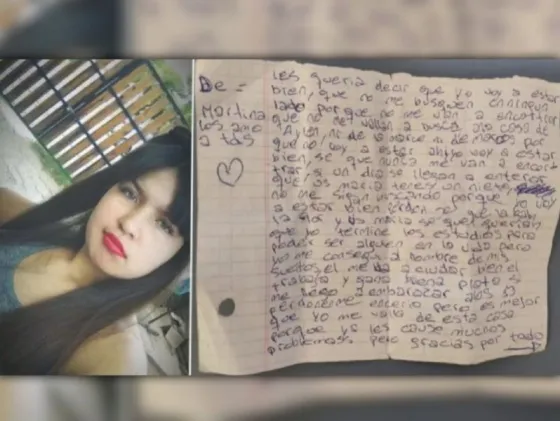 De =
Martina
los amo
a tds
Les queria decir que yo voy a estar
bien, que no me busquen en ningun
lado por que no me van a encontrar
que no me vallan a busca a la casa de
Aylen ni de la ni de por
que no voy a estar ahi yo voy a estar
bien, se que nunca me van a encont
trar, si un dia se llegan a enteras
que vos maria tenes un nieto
no me sigan buscando porque yo voy
a estar bien
la flor y vos maria se que querian
que yo termine los estudios para
poder ser alguien en la vida pero
yo me consegui al hombre de mis
sueños, el me va a cuidar bien el
trabaja y gana buena plata si
me llego a embarazar a los 13
perdonenme enserio pero es mejor
que yo me valla de esta casa
porque yo les cause muchos
problemas. pero gracias por todo